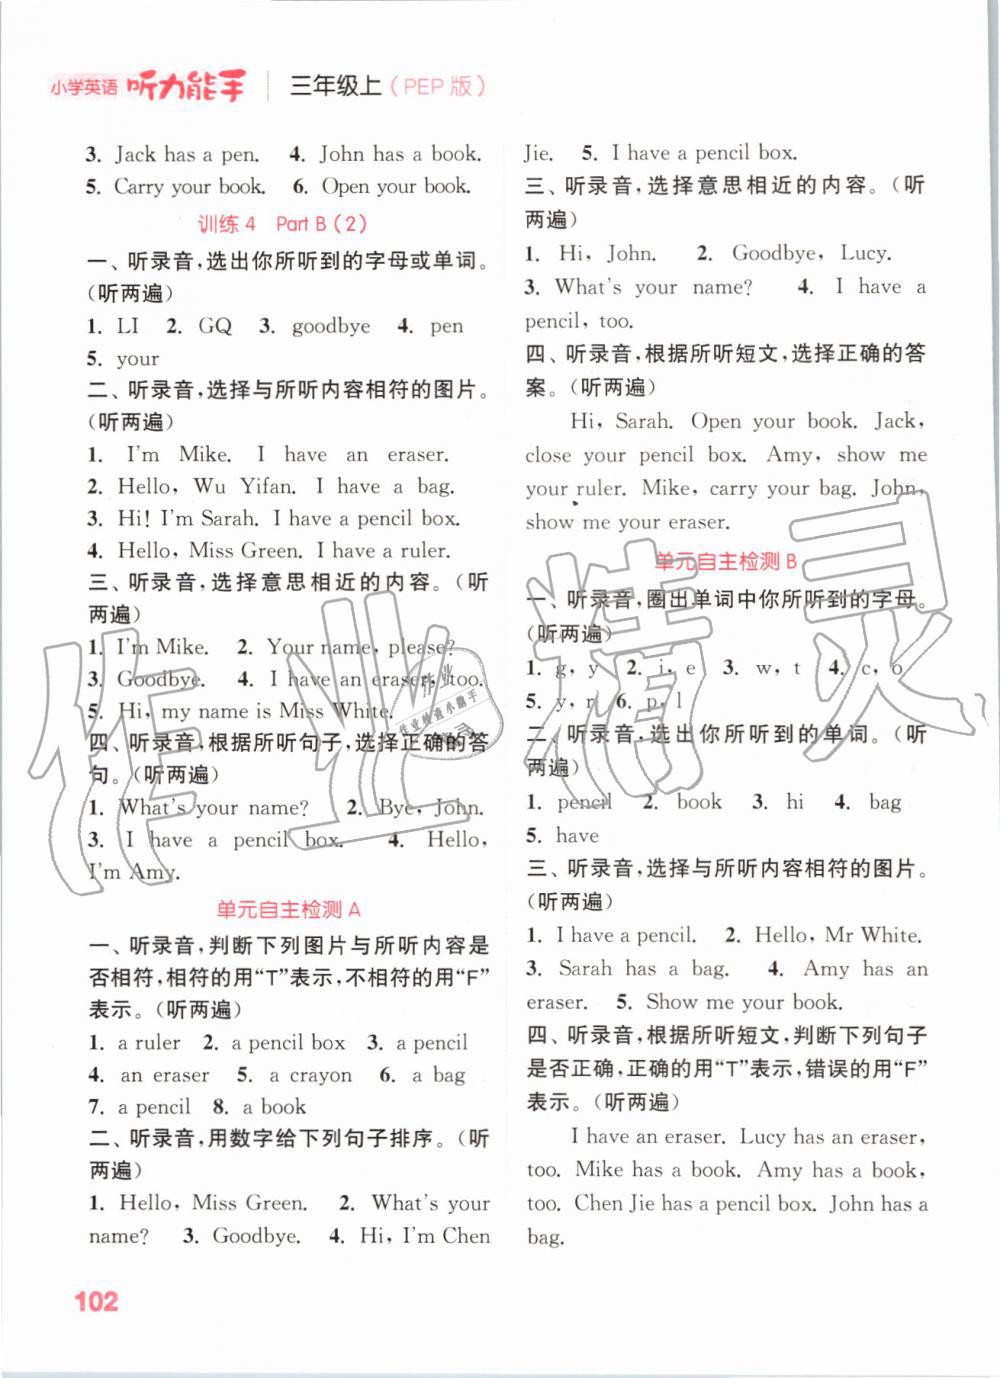 小学英语 听力能手 三年级上(PEP 版)
3. Jack has a pen. 4. John has a book.
5. Carry your book. 6. Open your book.
训练 4 Part B(2)
一、听录音,选出你所听到的字母或单词。
(听两遍)
1. LI 2. GQ 3. goodbye 4. pen
5. your
二、听录音,选择与所听内容相符的图片。
(听两遍)
1. I'm Mike. I have an eraser.
2. Hello, Wu Yifan. I have a bag.
3. Hi! I'm Sarah. I have a pencil box.
4. Hello, Miss Green. I have a ruler.
三、听录音,选择意思相近的内容。(听
两遍)
1. I'm Mike. 2. Your name, please?
3. Goodbye. 4. I have an eraser, too.
5. Hi, my name is Miss White.
四、听录音,根据所听句子,选择正确的答
句。(听两遍)
1. What's your name? 2. Bye, John.
3. I have a pencil box. 4. Hello,
I'm Amy.
单元自主检测 A
一、听录音,判断下列图片与所听内容是
否相符,相符的用“T”表示,不相符的用“F”
表示。(听两遍)
1. a ruler 2. a pencil box 3. a pencil
4. an eraser 5. a crayon 6. a bag
7. a pencil 8. a book
二、听录音,用数字给下列句子排序。(听
两遍)
1. Hello, Miss Green. 2. What's your
name? 3. Goodbye. 4. Hi, I'm Chen
Jie. 5. I have a pencil box.
三、听录音,选择意思相近的内容。(听
两遍)
1. Hi, John. 2. Goodbye, Lucy.
3. What's your name? 4. I have a
pencil, too.
四、听录音,根据所听短文,选择正确的答
案。(听两遍)
Hi, Sarah. Open your book. Jack,
close your pencil box. Amy, show me
your ruler. Mike, carry your bag. John,
show me your eraser.
单元自主检测 B
一、听录音,圈出单词中你所听到的字母。
(听两遍)
1. g, y 2. i, e 3. w, t 4. c, o
5. y, r 6. p, l
二、听录音,选出你所听到的单词。(听
两遍)
1. pencil 2. book 3. hi 4. bag
5. have
三、听录音,选择与所听内容相符的图片。
(听两遍)
1. I have a pencil. 2. Hello, Mr White.
3. Sarah has a bag. 4. Amy has an
eraser. 5. Show me your book.
四、听录音,根据所听短文,判断下列句子
是否正确,正确的用“T”表示,错误的用“F”
表示。(听两遍)
I have an eraser. Lucy has an eraser,
too. Mike has a book. Amy has a book,
too. Chen Jie has a pencil box. John has a
bag.
102
作业精灵